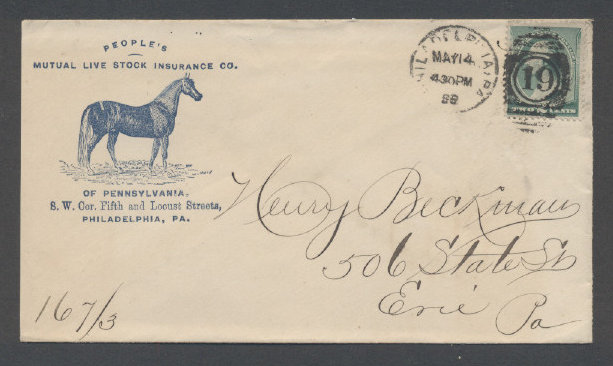 PEOPLE'S
MUTUAL LIVE STOCK INSURANCE CO.
OF PENNSYLVANIA,
S. W. Cor. Fifth and Locust Streets,
PHILADELPHIA, PA.
PHILADELPHIA, PA
MAY 14
430PM
88
19
TWO CENTS
Henry Beckman
506 State St
Erie
Pa
167/3